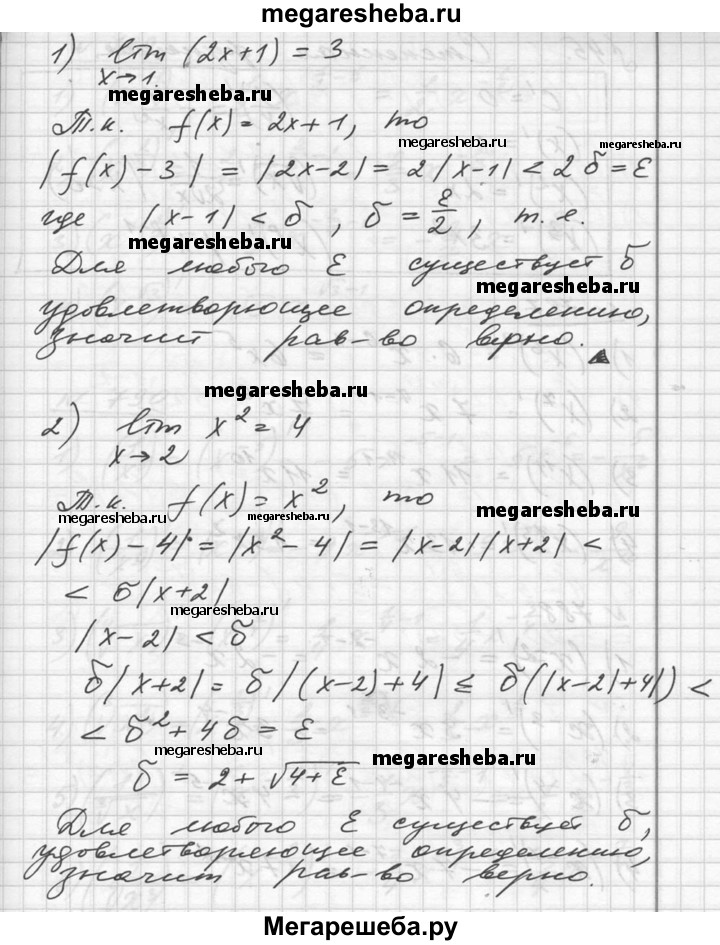 megaresheba.ru
1) lim (2x+1) = 3
x→1
megaresheba.ru
Т.к. f(x) = 2x+1, то
megaresheba.ru
megaresheba.ru
|f(x) − 3| = |2x−2| = 2|x−1| < 2δ = ε
где |x−1| < δ, δ = ε/2, т.е.
megaresheba.ru
Для любого ε существует δ
megaresheba.ru
удовлетворяющее определению,
значит рав-во верно. ▲
megaresheba.ru
2) lim x² = 4
x→2
Т.к. f(x) = x², то
megaresheba.ru
megaresheba.ru
megaresheba.ru
|f(x) − 4| = |x² − 4| = |x−2||x+2| <
< δ|x+2|
megaresheba.ru
|x−2| < δ
δ|x+2| = δ|(x−2)+4| ≤ δ(|x−2|+4|) <
< δ² + 4δ = ε
megaresheba.ru
megaresheba.ru
δ = 2 + √4+ε
megaresheba.ru
Для любого ε существует δ,
удовлетворяющее определению,
значит рав-во верно.
Мегарешеба.ру